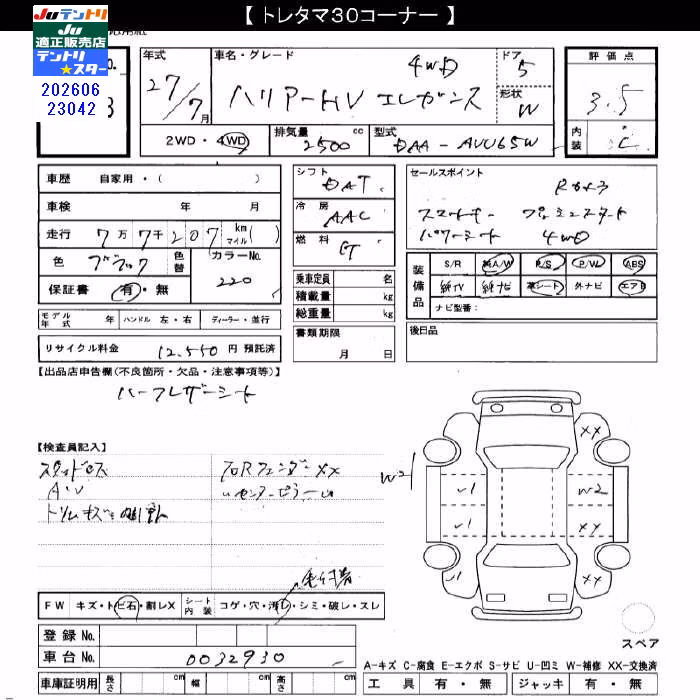 【 トレタマ30コーナー 】
JUテントリ
JU
適正販売店
テントリ
★スター
202606
23042
年式
27/7月
車名・グレード
4WD
ハリアーHV エレガンス
ドア
5
形状
W
評価点
3.5
内装
C
2WD・4WD
排気量
2500cc
型式
DAA-AVU65W
車歴 自家用・( )
車検 年 月
走行 7万7千207 km マイル ( )
色 ブラック 色替 カラーNo. 220
保証書 有・無
シフト
DAT
冷房
AAC
燃料
乗車定員 名
積載量 kg
総重量 kg
書類期限
月 日
セールスポイント
スマートキー プッシュスタート
パワーシート 4WD
装備品
S/R 純A/W P/S P/W ABS
純TV 純ナビ 革シート 外ナビ エアB
ナビ型番:
後日品
モデル年式 年 ハンドル 左・右 ディーラー・並行
リサイクル料金 12,550円 預託済
【出品店申告欄(不良箇所・欠品・注意事項等)】
ハーフレザーシート
【検査員記入】
AU
XX
W2
U1
W2
U1
XX
U1
XX
FW キズ・トビ石・割レX シート内装 コゲ・穴・汚レ・シミ・破レ・スレ
登録 No.
車台 No. 0032930
車庫証明用 長さ cm 幅 cm 高さ cm
スペア
A-キズ C-腐食 E-エクボ S-サビ U-凹ミ W-補修 XX-交換済
工具 有・無 ジャッキ 有・無